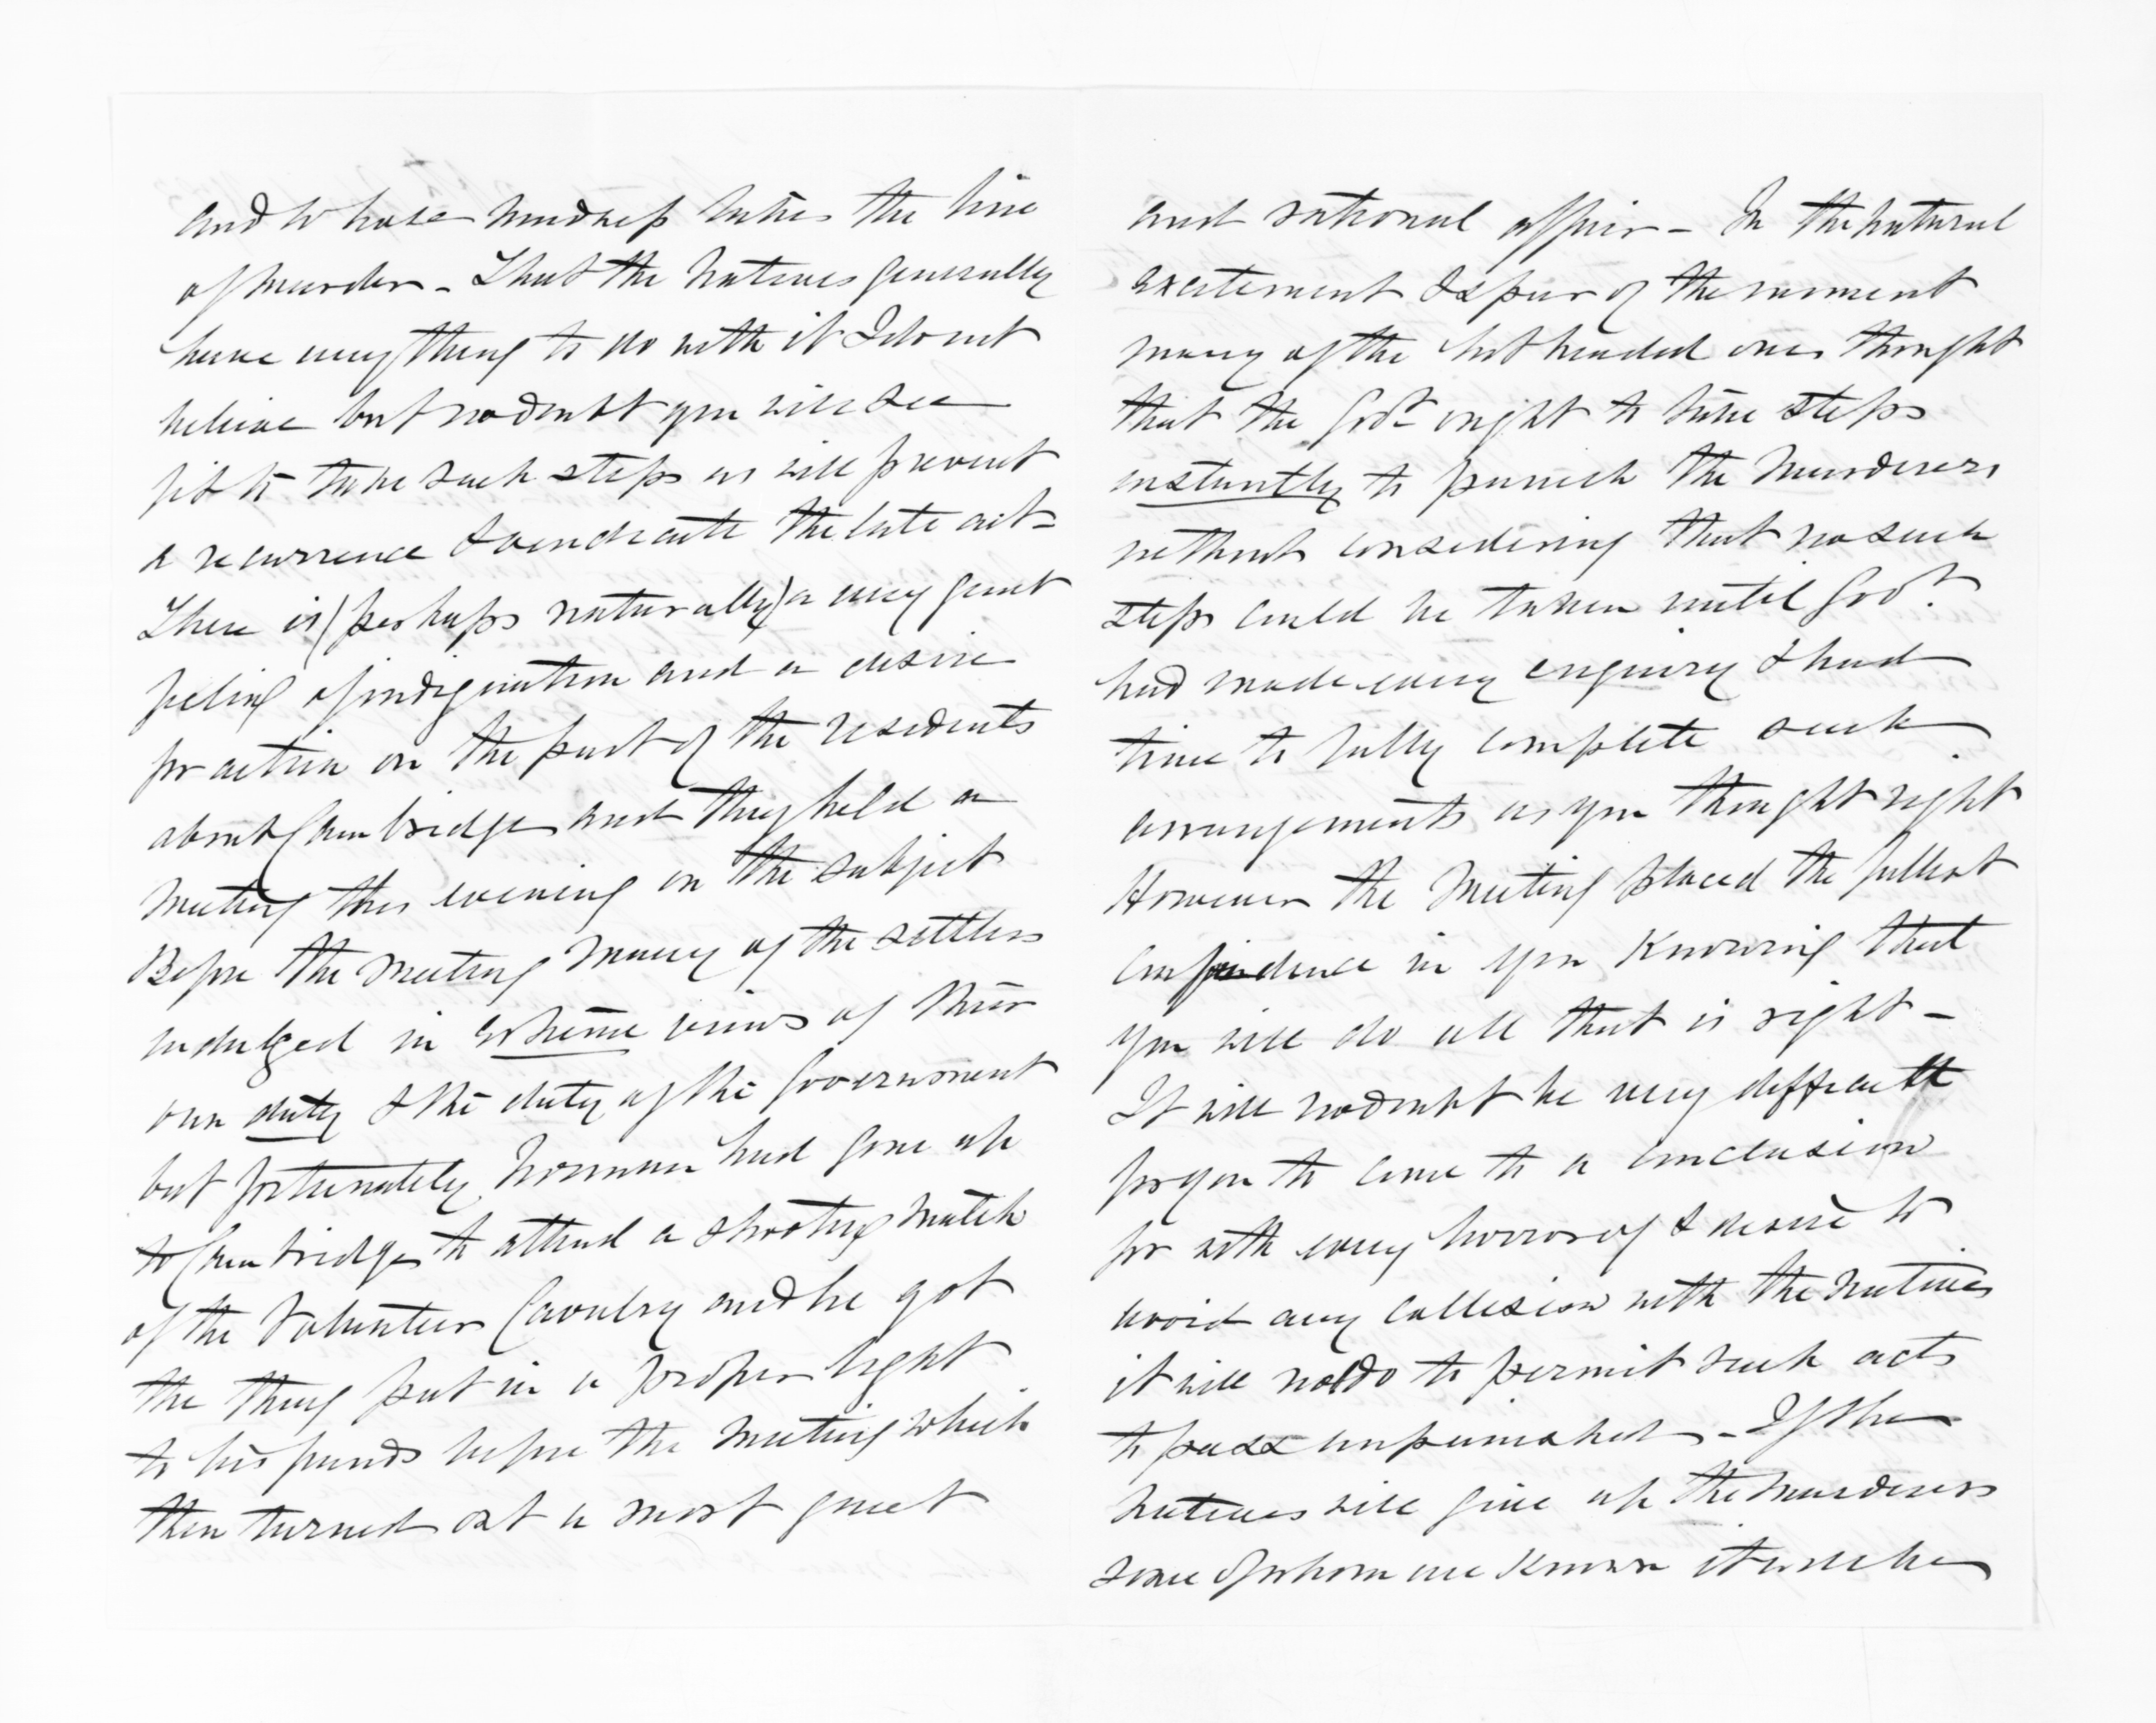 and whose madness takes the line
of murder - That the Natives generally
have anything to do with it I do not
believe but no doubt you will see
fit to take such steps as will prevent
a recurrence & vindicate the late act -
There is (perhaps naturally) a very great
feeling of indignation and a desire
for action on the part of the residents
about Cambridge and they held a
meeting this evening on the subject
Before the meeting many of the settlers
indulged in extreme views of their
own duty & the duty of the Government
but fortunately Norman had gone up
to Cambridge to attend a shooting match
of the Volunteer Cavalry and he got
the thing put in a proper light
to his friends before the meeting which
then turned out a most quiet
and rational affair - In the natural
excitement & spur of the moment
many of the hot headed ones thought
that the Govt ought to take steps
instantly to punish the Murderers
without considering that no such
steps could be taken until Govt.
had made every enquiry & had
time to fully complete such
arrangements as you thought right
However the Meeting placed the fullest
confidence in you Knowing that
you will do all that is right -
It will no doubt be very difficult
for you to come to a conclusion
for with every horror of & desire to
avoid any collision with the Natives
it will not do to permit such acts
to pass unpunished - If the
Natives will give up the Murderers
some of whom are known it will be